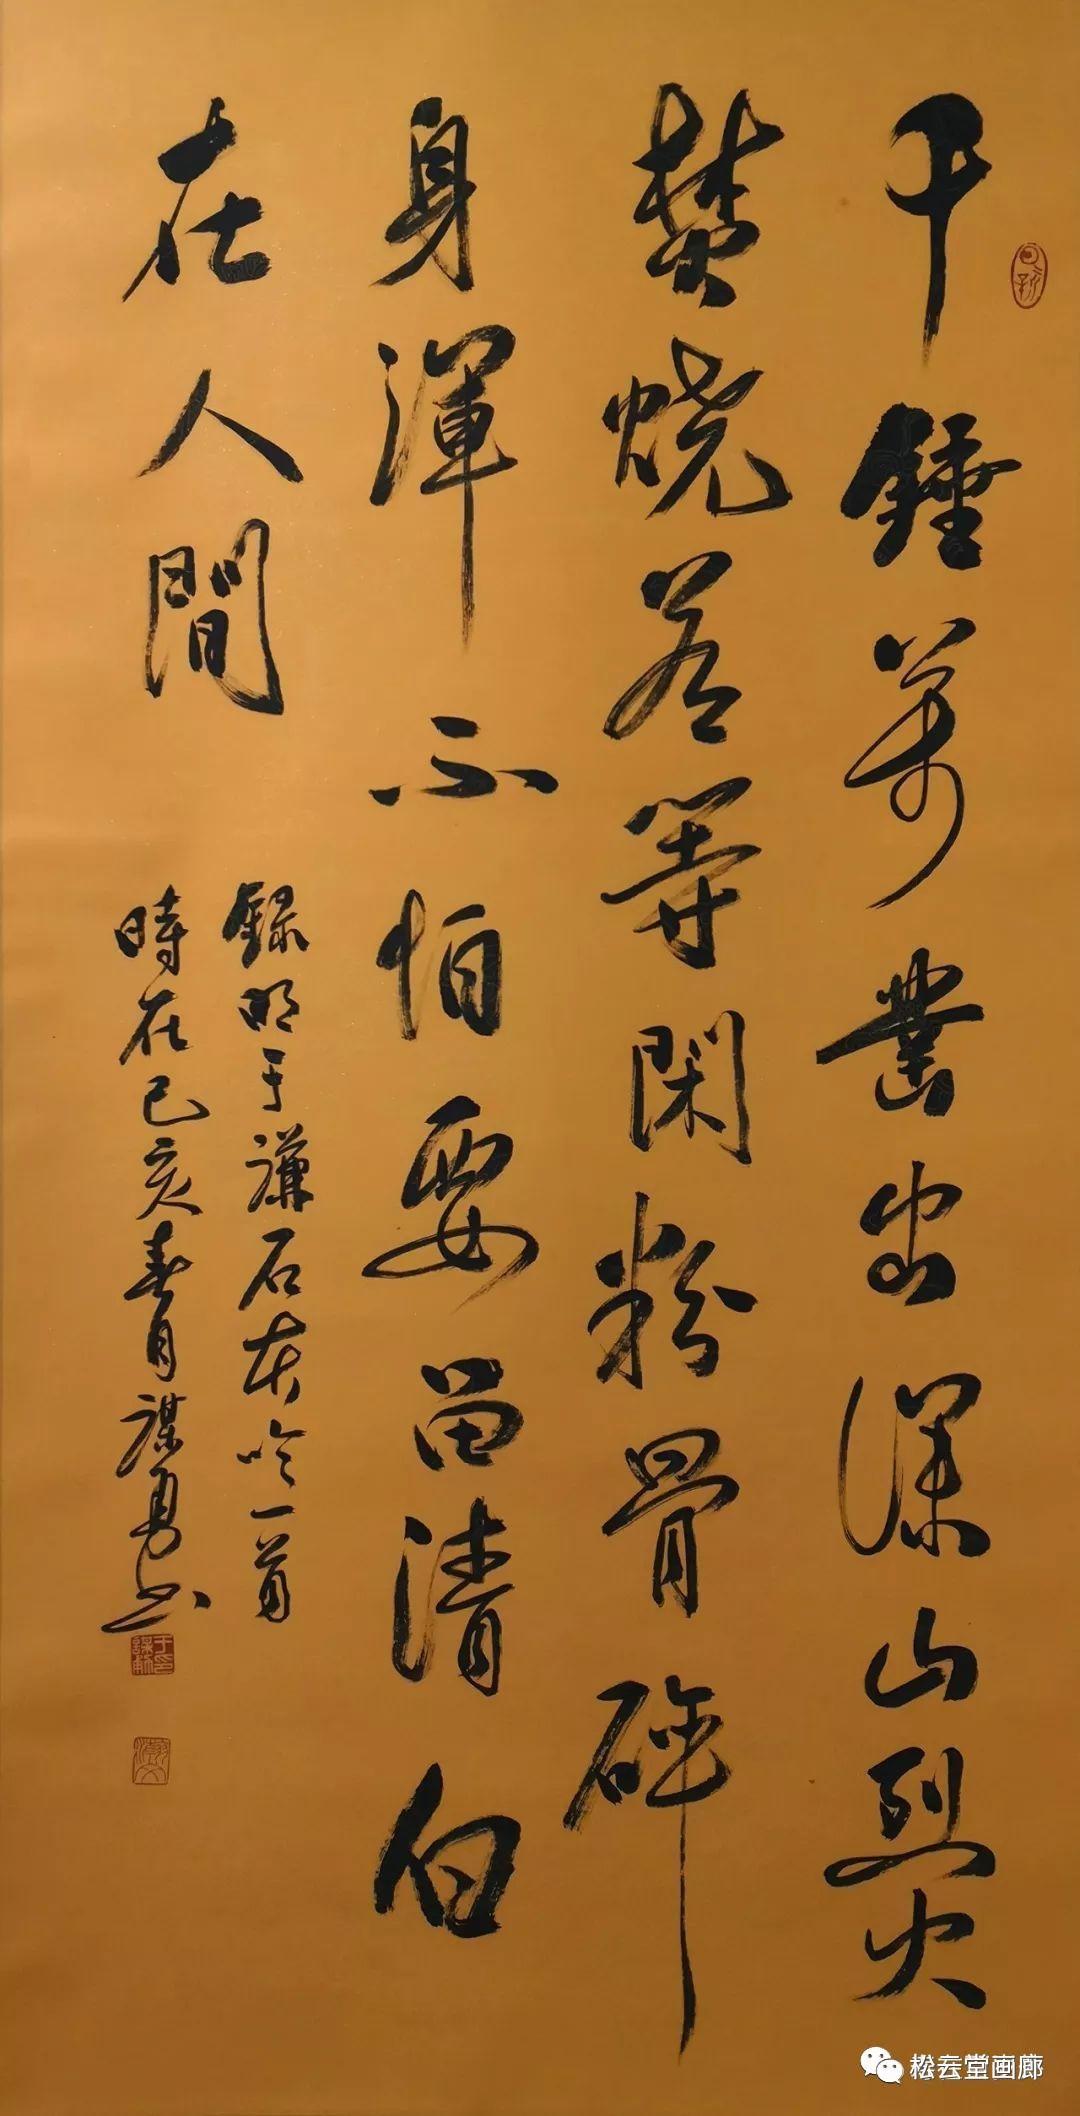 千錘萬凿出深山烈火
焚烧若等閑粉骨碎
身渾不怕要留清白
在人間
錄明于謙石灰吟一首
時在己亥春月謀勇书
松云堂画廊